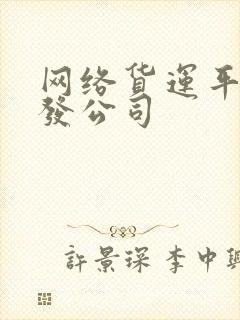 网络货運平
發公司
許景琛 李中興